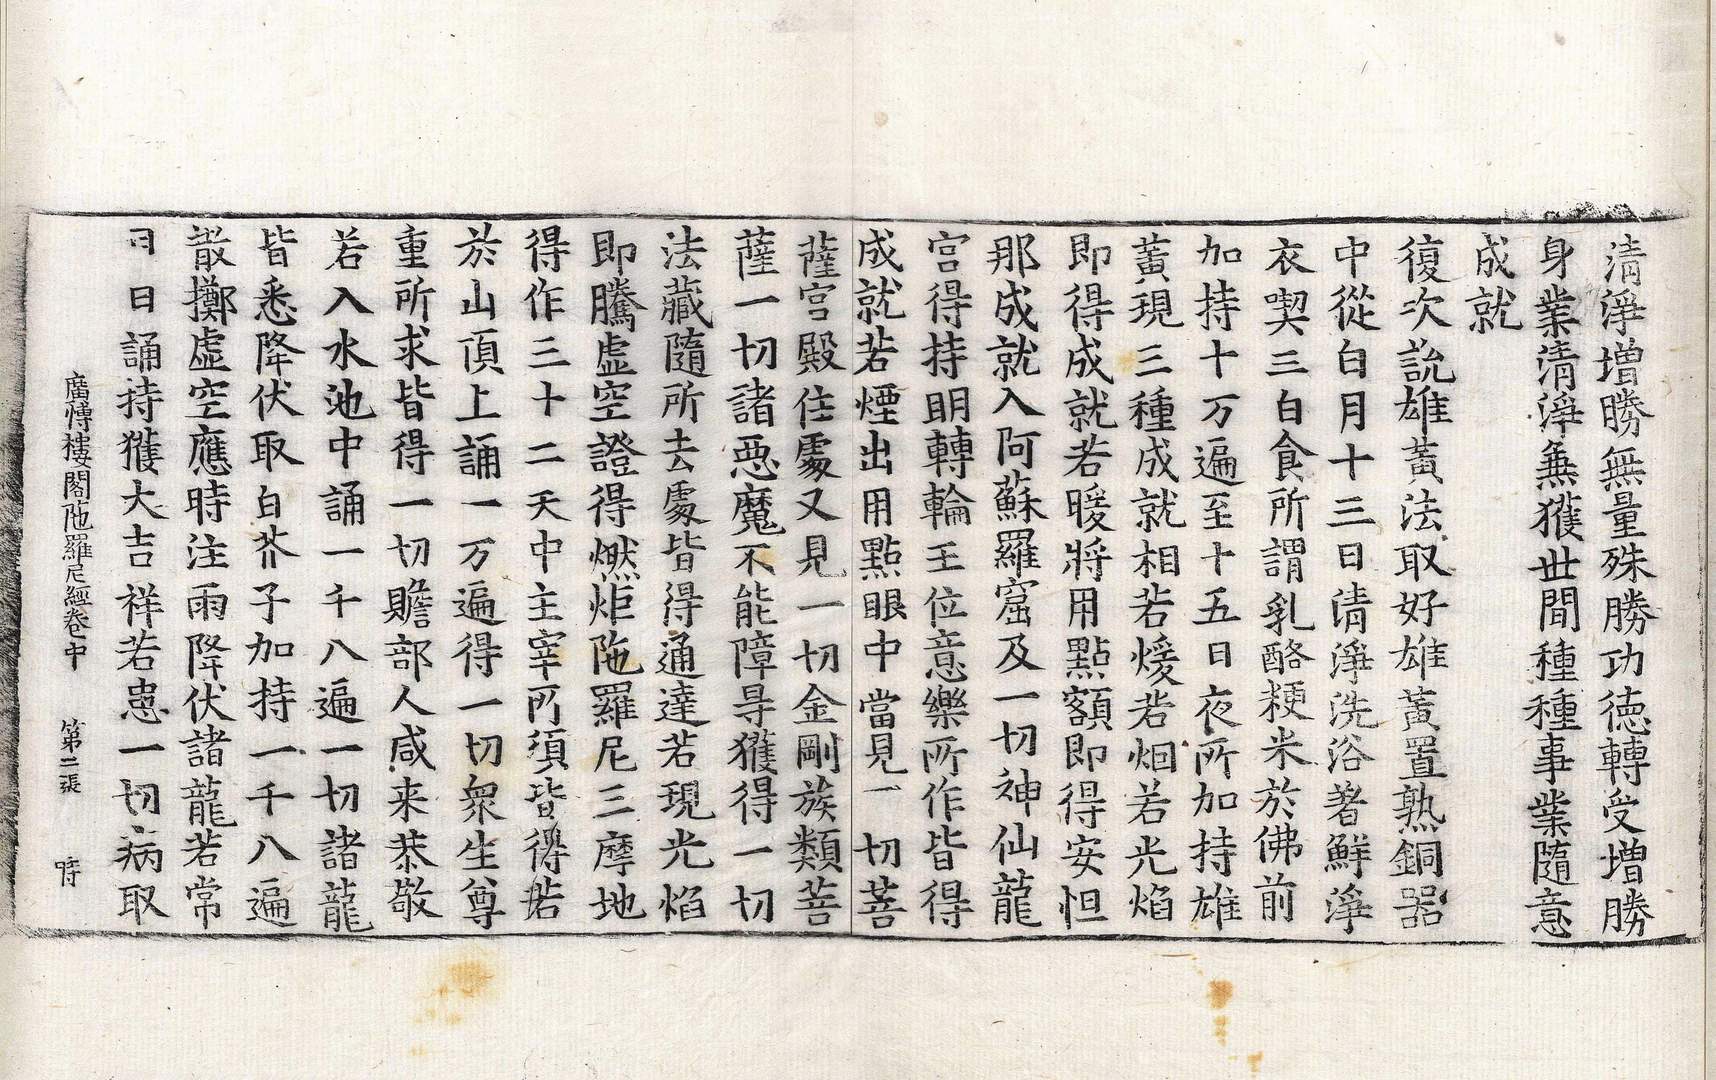 清淨增勝無量殊勝功德轉受增勝
身業清淨無獲世間種種事業隨意
成就
復次說雄黃法取好雄黃置熟銅器
中從白月十三日清淨洗浴著鮮淨
衣喫三白食所謂乳酪粳米於佛前
加持十万遍至十五日夜所加持雄
黃現三種成就相若煖若烟若光焰
即得成就若暖將用點額即得安怛
那成就入阿蘇羅窟及一切神仙龍
宮得持明轉輪王位意樂所作皆得
成就若煙出用點眼中當見一切菩
薩宮殿住處又見一切金剛族類菩
薩一切諸惡魔不能障㝵獲得一切
法藏隨所去處皆得通達若現光焰
即騰虛空證得燃炬陁羅尼三摩地
得作三十二天中主宰所須皆得若
於山頂上誦一万遍得一切衆生尊
重所求皆得一切贍部人咸来恭敬
若入水池中誦一千八遍一切諸龍
皆悉降伏取白芥子加持一千八遍
散擲虛空應時注雨降伏諸龍若常
日日誦持獲大吉祥若患一切病取
廣愽樓閣陁羅尼經卷中 第二張 時